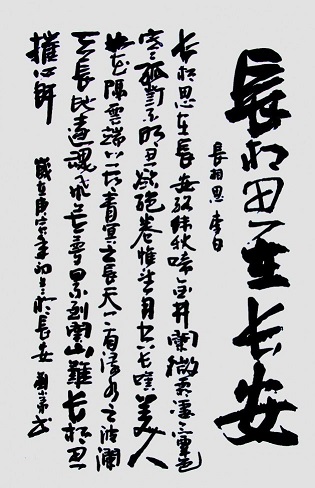 長相思在长安
長相思 李白
长相思在長安絡緯秋啼金井闌微霜淒淒簟色
寒孤燈不明思欲絕卷帷望月空長嘆美人
如花隔雲端上有青冥之長天下有淥水之波瀾
天長路遠魂飛苦夢魂不到關山難長相思
摧心肝
歲在庚寅年初冬於長安